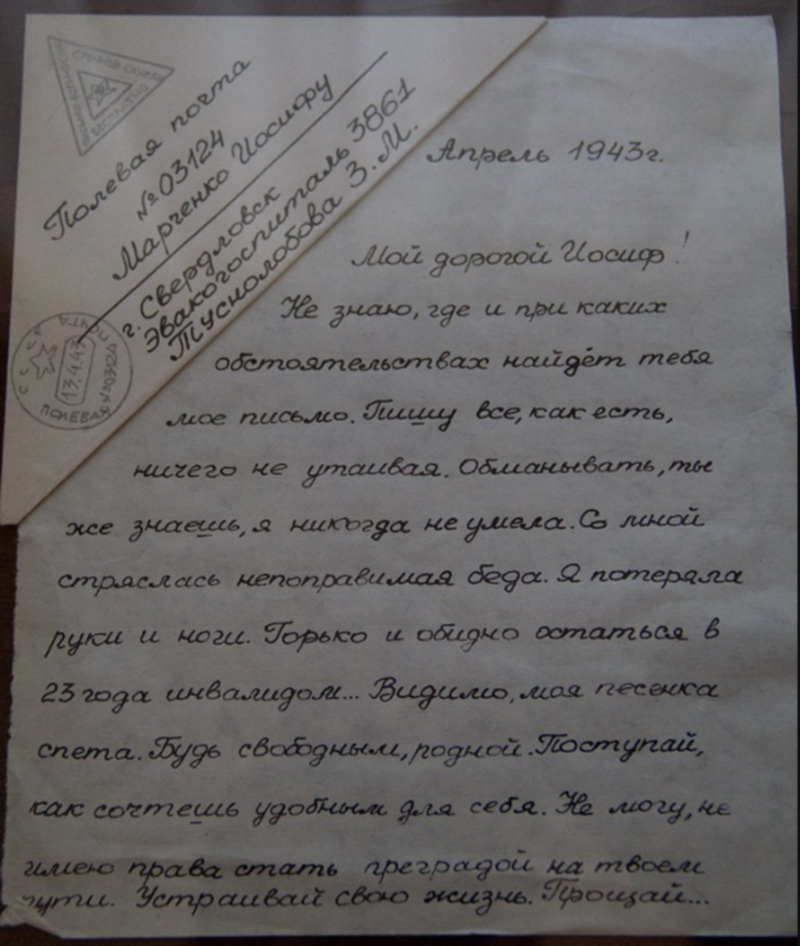 Полевая почта
№ 03124
Марченко Иосифу
г. Свердловск
Эвакогоспиталь 3861
Туснолобова З. М.
СССР ПОЧТА
13.4.43
ПОЛЕВАЯ №03124
БЕСПЛАТНО
Апрель 1943г.
Мой дорогой Иосиф!
Не знаю, где и при каких
обстоятельствах найдёт тебя
мое письмо. Пишу все, как есть,
ничего не утаивая. Обманывать, ты
же знаешь, я никогда не умела. Со мной
стряслась непоправимая беда. Я потеряла
руки и ноги. Горько и обидно остаться в
23 года инвалидом... Видимо, моя песенка
спета. Будь свободным, родной. Поступай,
как сочтешь удобным для себя. Не могу, не
имею права стать преградой на твоем
пути. Устраивай свою жизнь. Прощай...